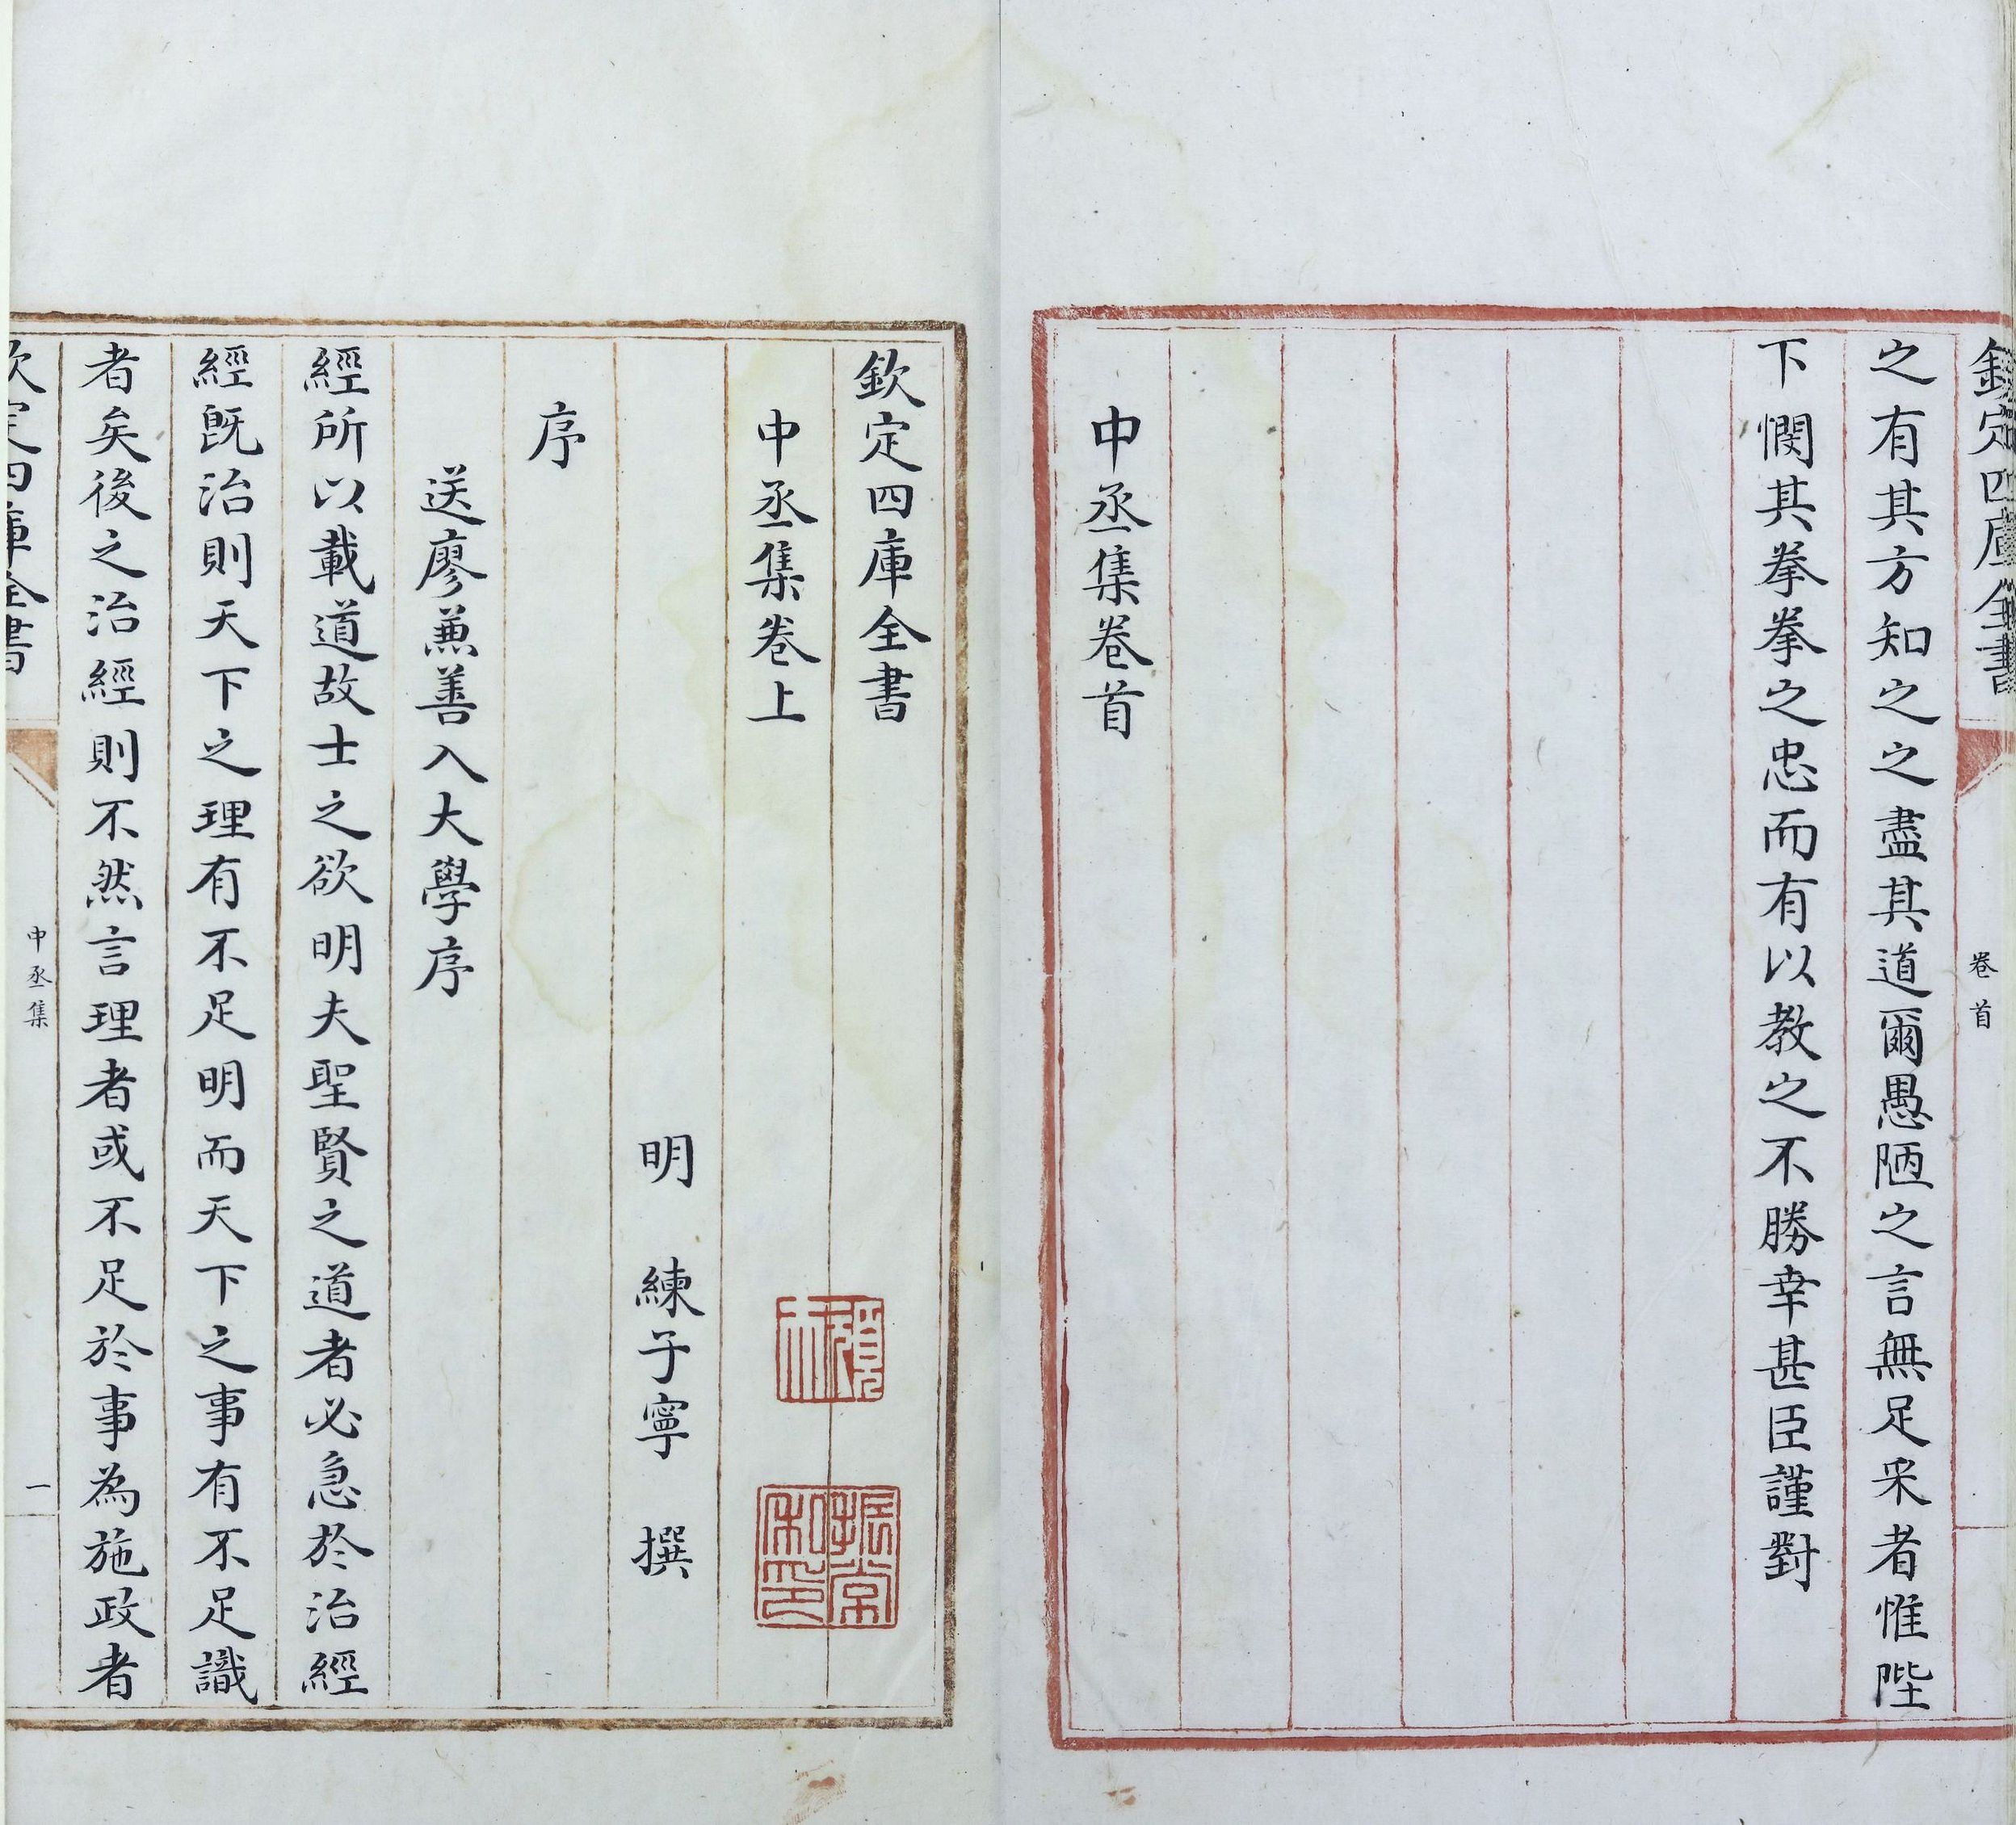 欽定四庫全書
卷首
之有其方知之之盡其道爾愚陋之言無足采者惟陛
下憫其拳拳之忠而有以教之不勝幸甚臣謹對
中丞集卷首
欽定四庫全書
中丞集卷上
明 練子寧 撰
序
送廖兼善入大學序
經所以載道故士之欲明夫聖賢之道者必急於治經
經既治則天下之理有不足明而天下之事有不足識
者矣後之治經則不然言理者或不足於事為施政者
欽定四庫全書
中丞集
一
振常印